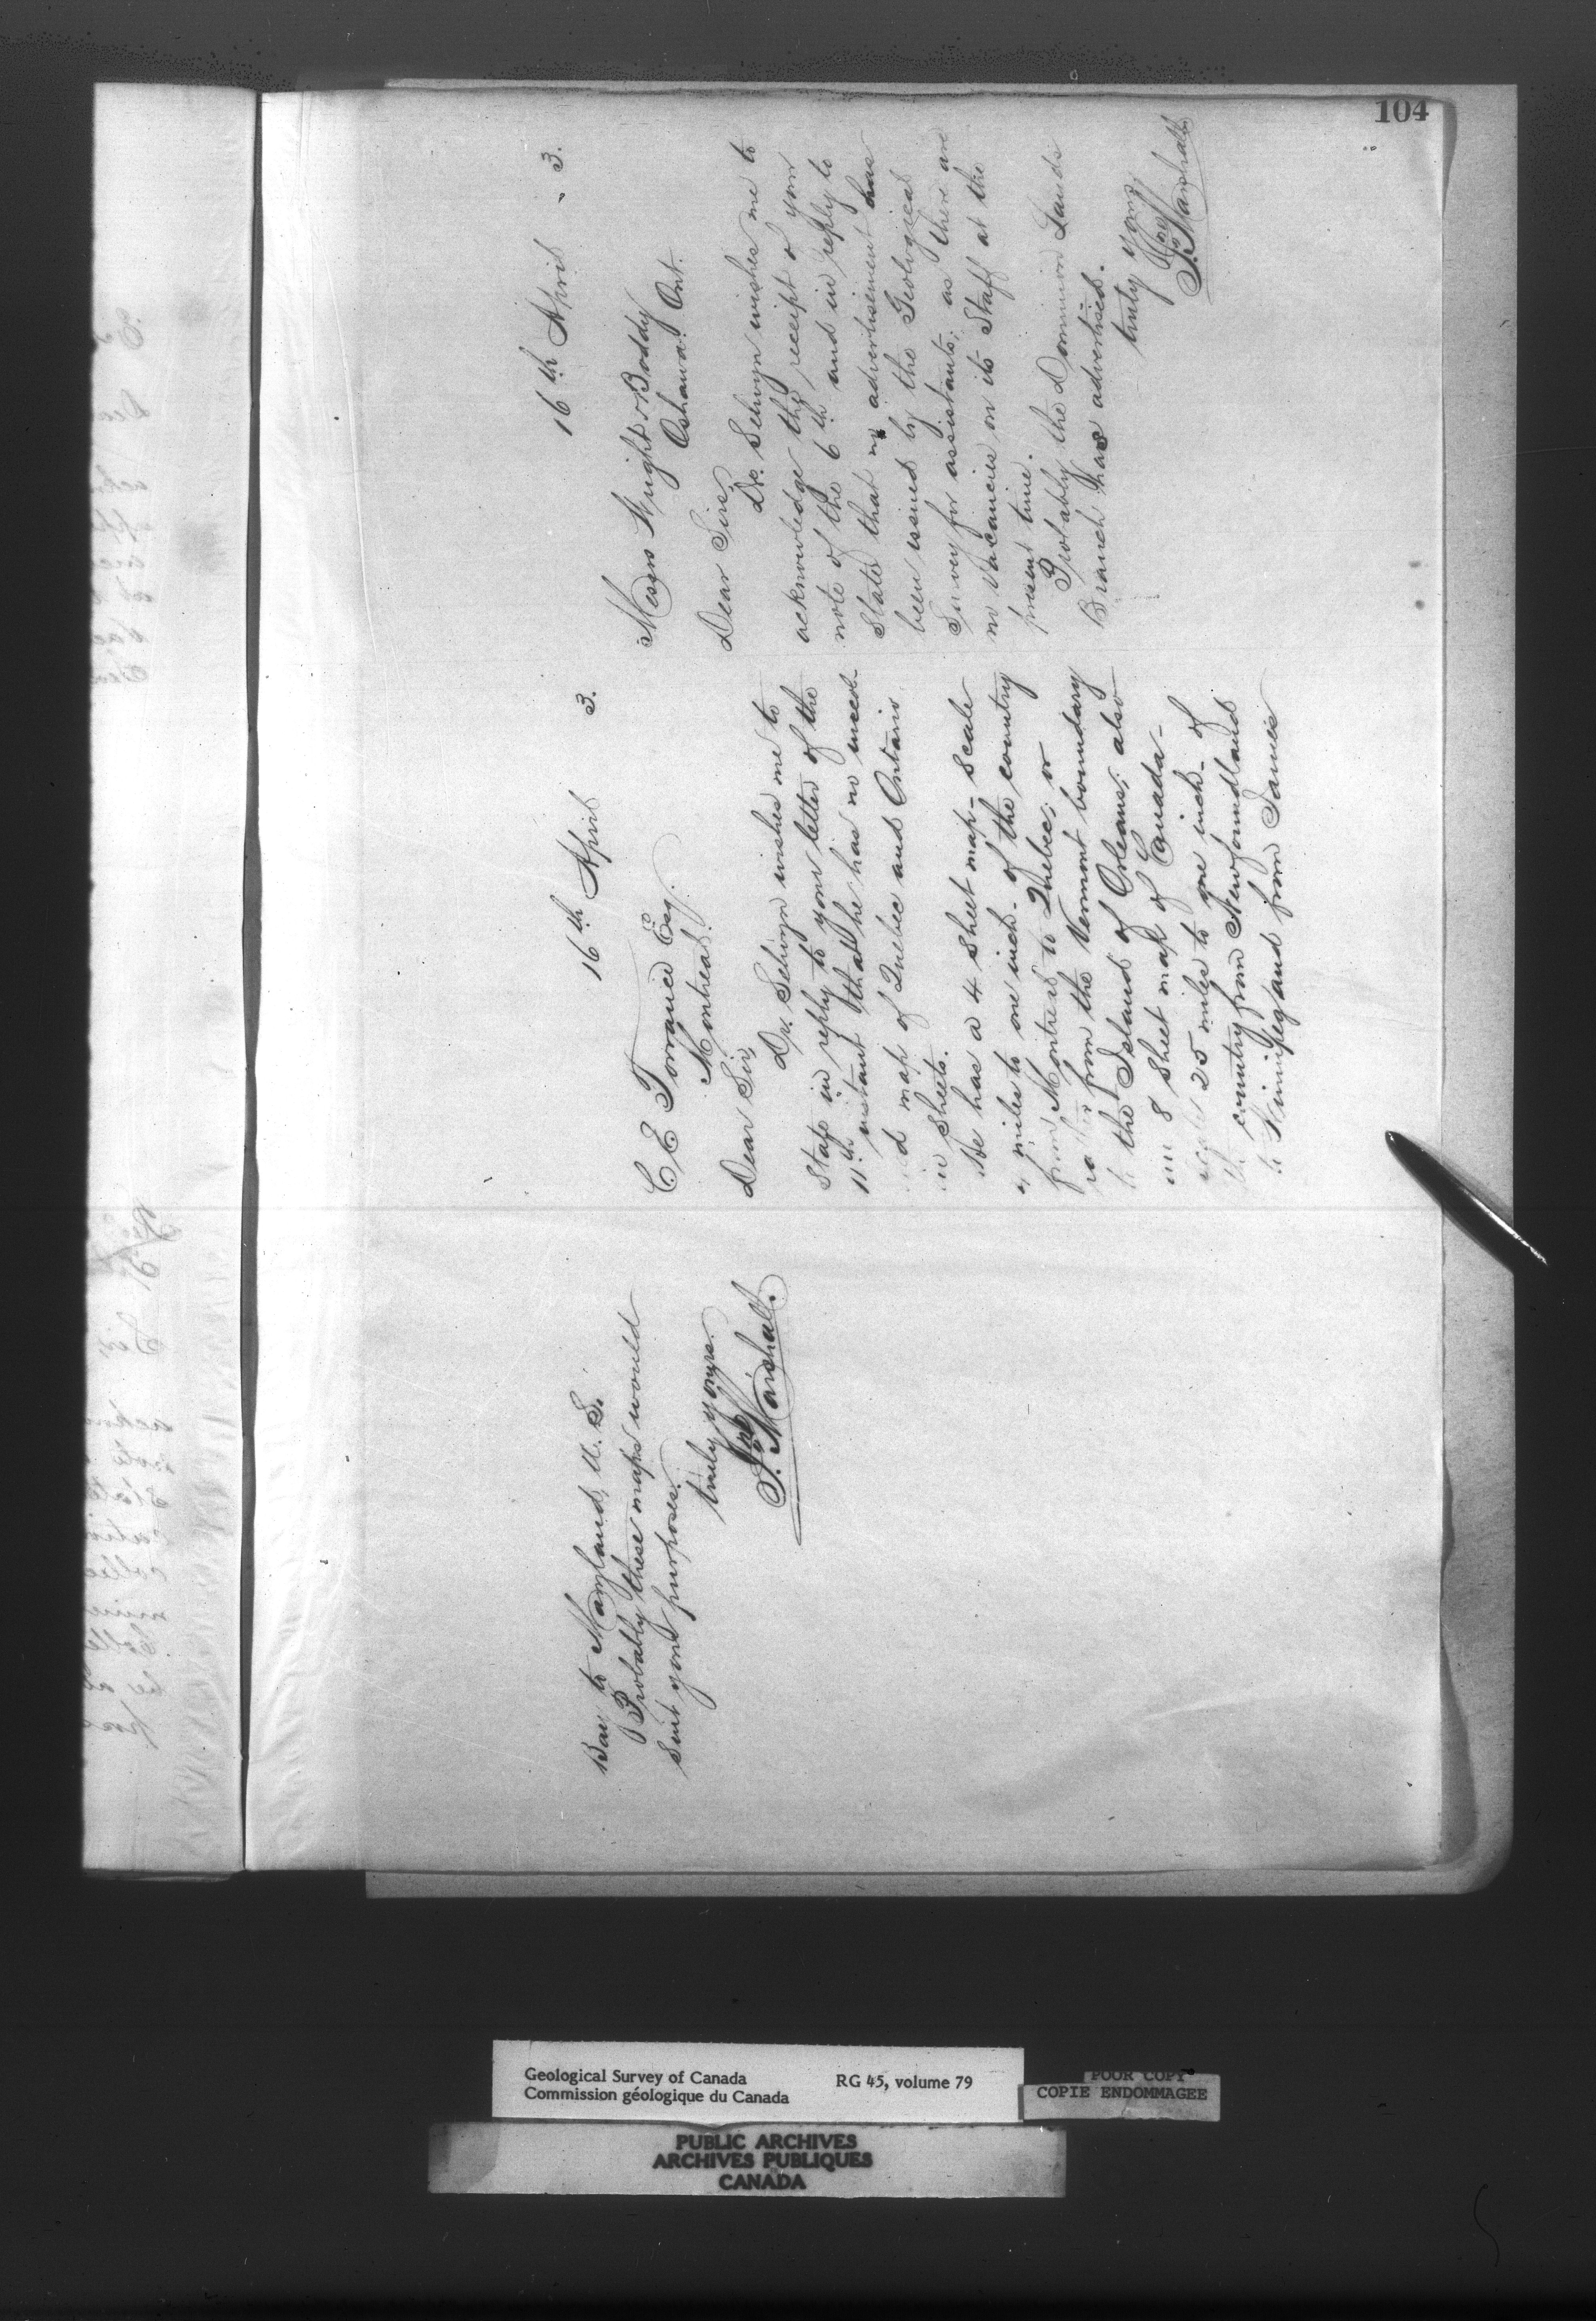 104
16th April 3.
Messrs Wright & Boddy
Oshawa. Ont.
Dear Sirs,
Dr. Selwyn wishes me to
acknowledge the receipt of your
note of the 6th and in reply to
State that no advertisement has
been issued by the Geological
Survey for assistants; as there are
no vacancies on its Staff at the
present time.
Probably the Dominion Lands
Branch has advertised.
truly yours
Jno Marshall
16th April 3.
C E Torrance Esq.
Montreal.
Dear Sir,
Dr. Selwyn wishes me to
State in reply to your letter of the
11th instant that he has no
map of Quebec and Ontario
in Sheets.
He has a 4 Sheet map - Scale
4 miles to one inch - of the country
from Montreal to Quebec; or
rather from the Vermont boundary
to the Island of Orleans; also
an 8 Sheet map of Canada -
scale 25 miles to one inch - of
the country from Newfoundland
to Winnipeg and from James
Bay to Maryland, U. S.
Probably these maps would
Suit your purposes.
truly yours.
Jno Marshall.
Geological Survey of Canada
Commission géologique du Canada
RG 45, volume 79
POOR COPY
COPIE ENDOMMAGEE
PUBLIC ARCHIVES
ARCHIVES PUBLIQUES
CANADA